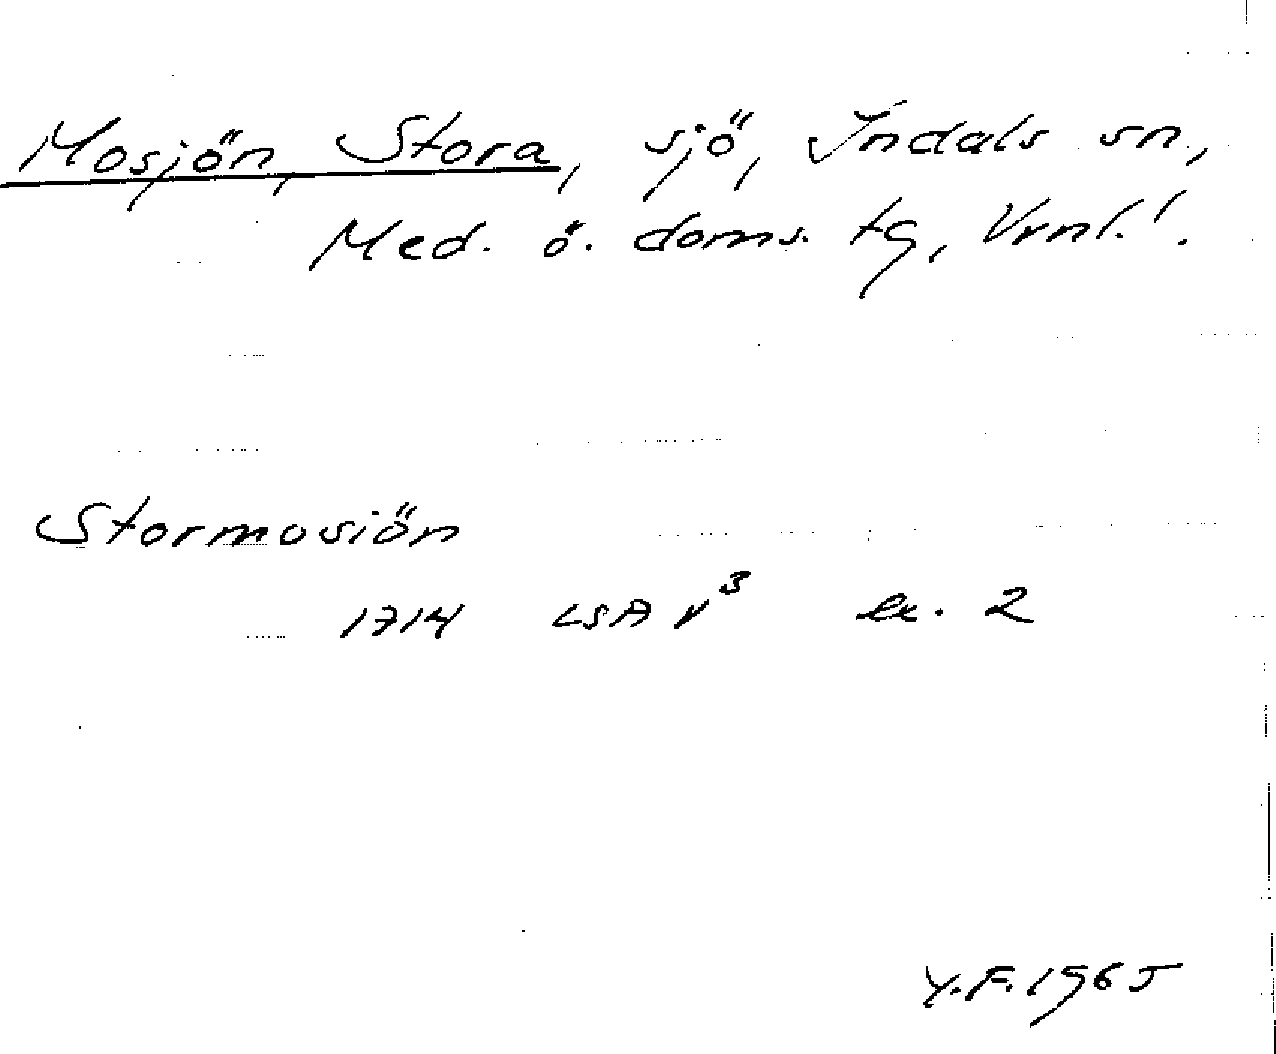 Mosjön, Stora, sjö, Indals sn,
Med. ö. doms. tg, Vrnl.
Stormosiön
1714 LSA v³ ex. 2
Y.F. 1965